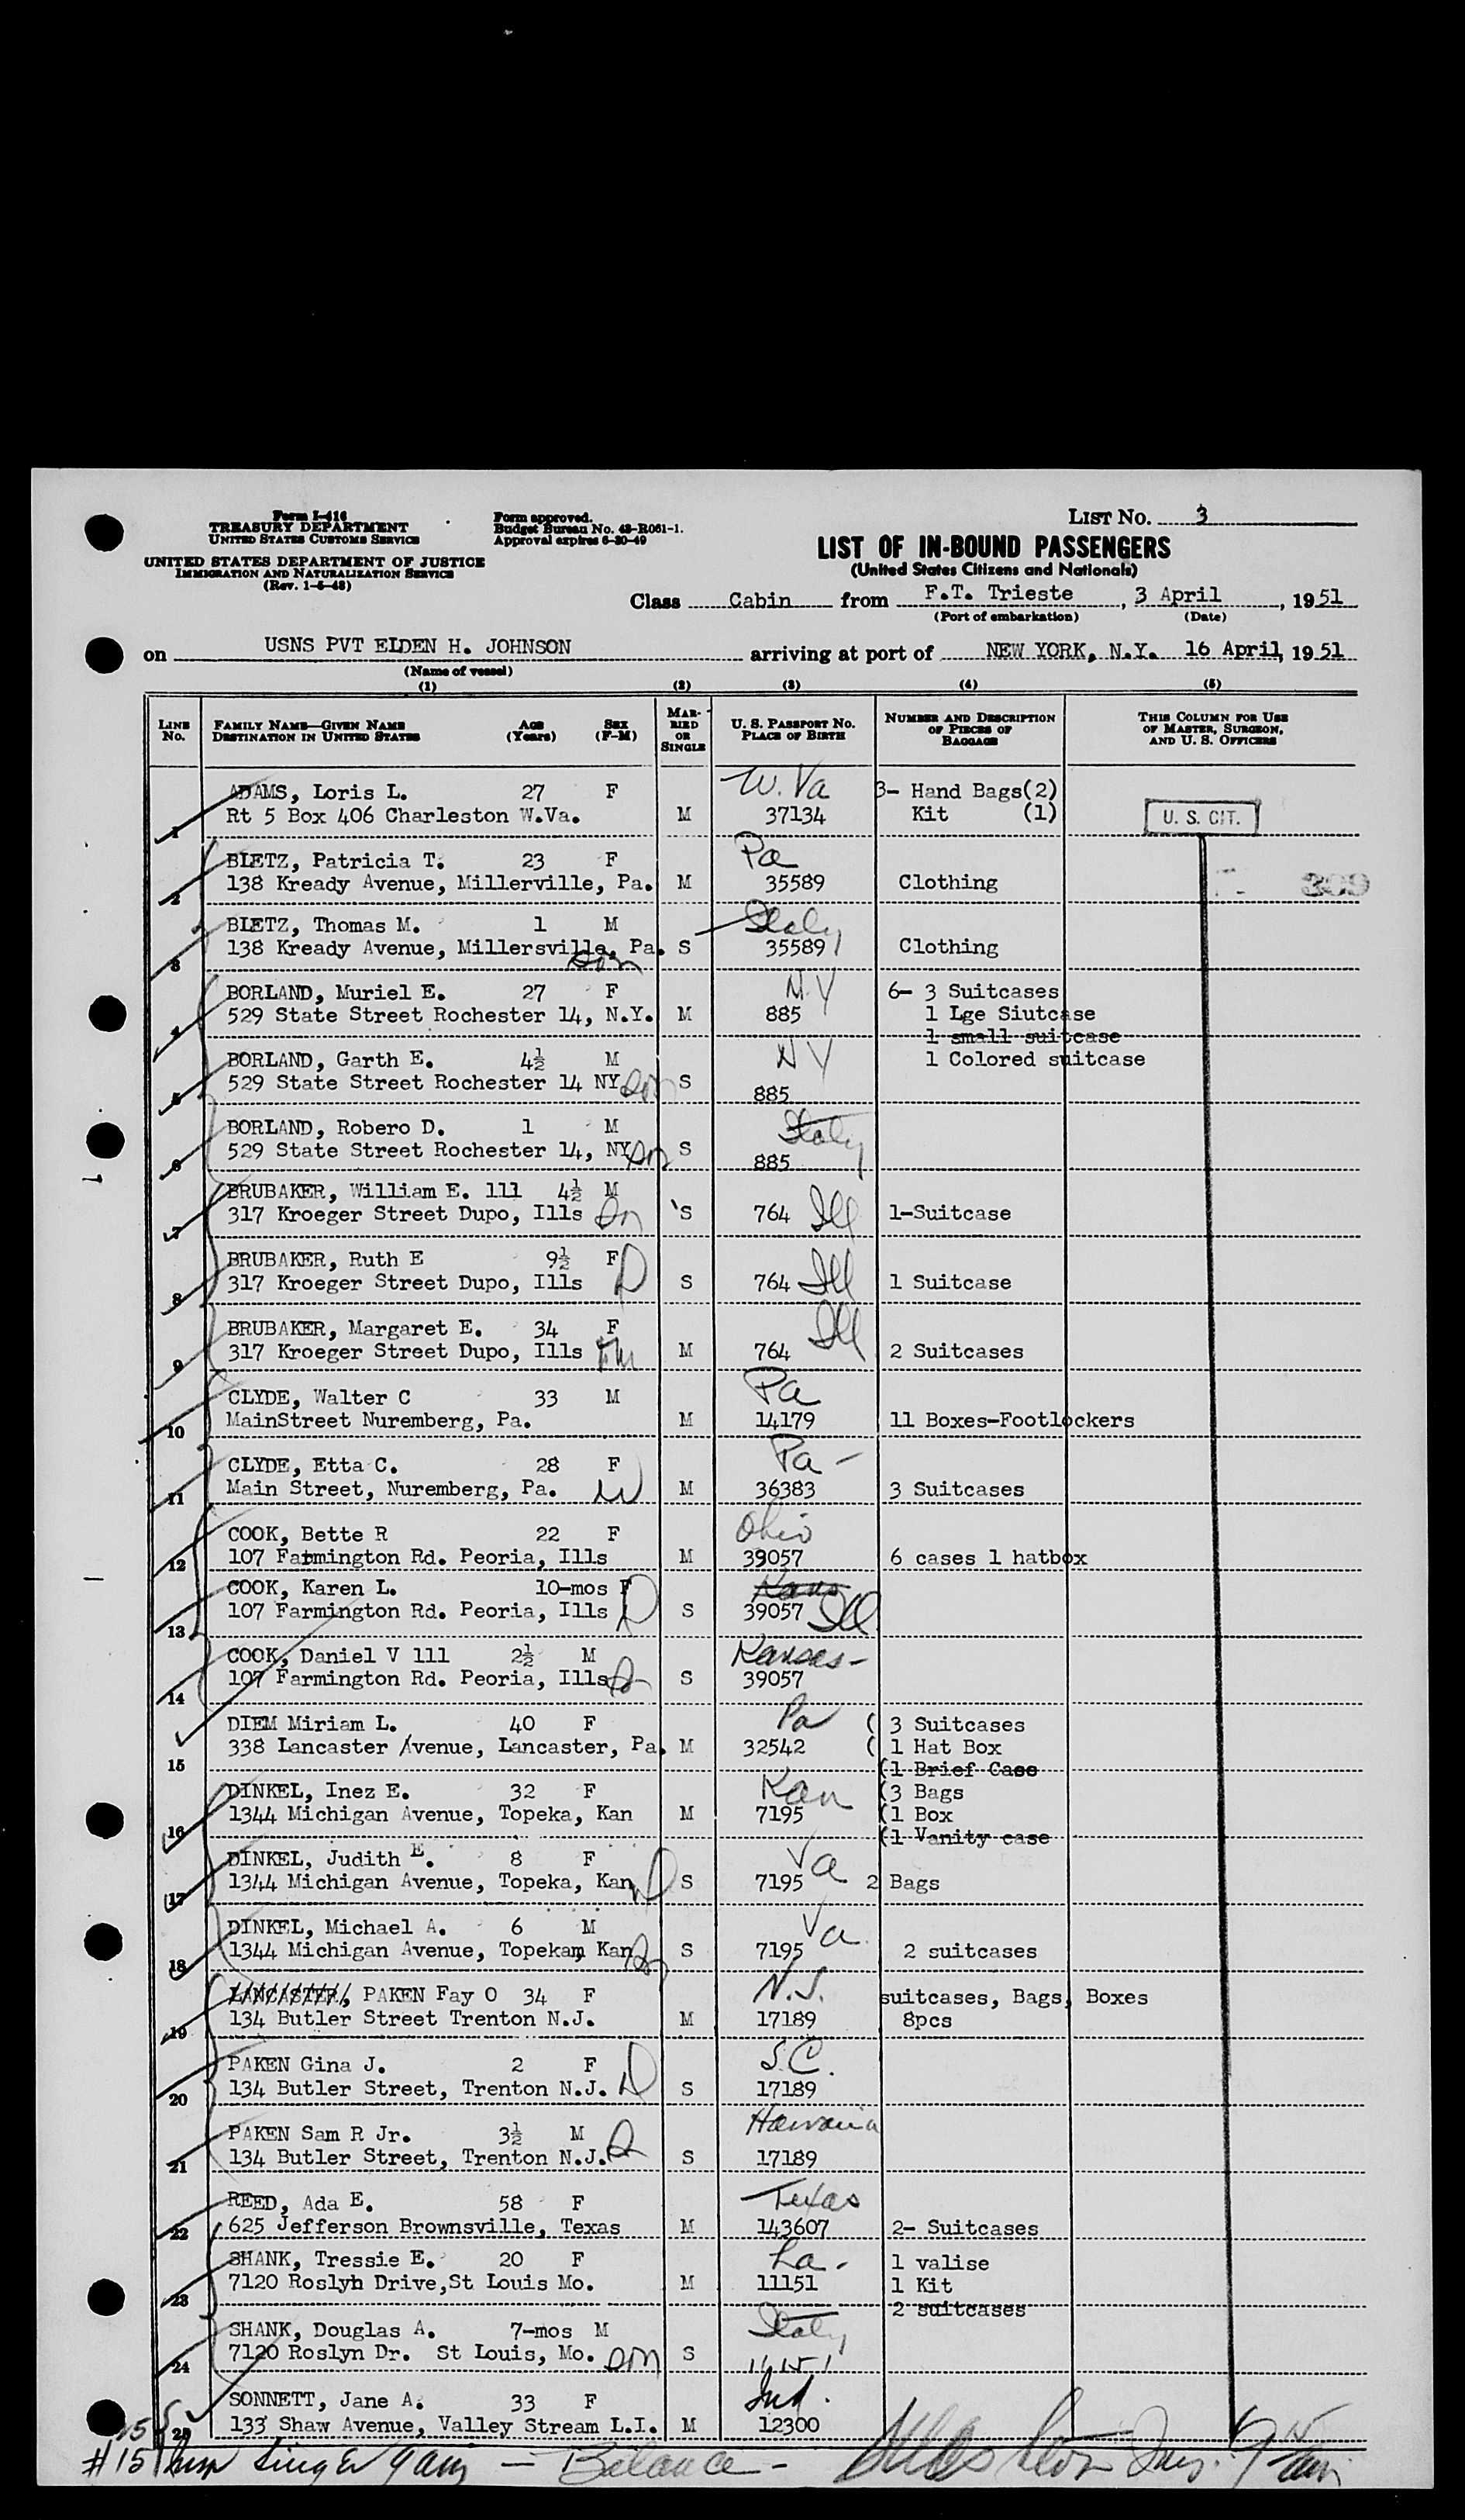 Form I-416
TREASURY DEPARTMENT
UNITED STATES CUSTOMS SERVICE
UNITED STATES DEPARTMENT OF JUSTICE
IMMIGRATION AND NATURALIZATION SERVICE
(Rev. 1-5-48)
Form approved.
Budget Bureau No. 43-R061-1.
Approval expires 6-30-49
LIST No. 3
LIST OF IN-BOUND PASSENGERS
(United States Citizens and Nationals)
Class Cabin from F.T. Trieste, 3 April, 1951
(Port of embarkation) (Date)
on USNS PVT ELDEN H. JOHNSON arriving at port of NEW YORK, N.Y. 16 April, 1951
(Name of vessel)
(1) (2) (3) (4) (5)
LINE No.
FAMILY NAME—GIVEN NAME
DESTINATION IN UNITED STATES
AGE (Years)
SEX (F-M)
MARRIED OR SINGLE
U. S. PASSPORT No.
PLACE OF BIRTH
NUMBER AND DESCRIPTION OF PIECES OF BAGGAGE
THIS COLUMN FOR USE OF MASTER, SURGEON, AND U. S. OFFICERS
ADAMS, Loris L. 27 F W. Va 3- Hand Bags(2)
1 Rt 5 Box 406 Charleston W.Va. M 37134 Kit (1) U. S. CIT.
BIETZ, Patricia T. 23 F Pa
2 138 Kready Avenue, Millerville, Pa. M 35589 Clothing 309
BIETZ, Thomas M. 1 M Italy
3 138 Kready Avenue, Millersville, Pa. son S 35589 Clothing
BORLAND, Muriel E. 27 F N.Y 6- 3 Suitcases
4 529 State Street Rochester 14, N.Y. M 885 1 Lge Siutcase
1 small suitcase
BORLAND, Garth E. 4½ M NY 1 Colored suitcase
5 529 State Street Rochester 14 NY son S 885
BORLAND, Robero D. 1 M Italy
6 529 State Street Rochester 14, NY son S 885
BRUBAKER, William E. 111 4½ M
7 317 Kroeger Street Dupo, Ills Sn S 764 Ill 1-Suitcase
BRUBAKER, Ruth E 9½ F
8 317 Kroeger Street Dupo, Ills D S 764 Ill 1 Suitcase
BRUBAKER, Margaret E. 34 F Ill
9 317 Kroeger Street Dupo, Ills M 764 2 Suitcases
CLYDE, Walter C 33 M Pa
10 MainStreet Nuremberg, Pa. M 14179 11 Boxes-Footlockers
CLYDE, Etta C. 28 F Pa -
11 Main Street, Nuremberg, Pa. W M 36383 3 Suitcases
COOK, Bette R 22 F Ohio
12 107 Farmington Rd. Peoria, Ills M 39057 6 cases 1 hatbox
COOK, Karen L. 10-mos F Kans
13 107 Farmington Rd. Peoria, Ills D S 39057 Ill
COOK, Daniel V 111 2½ M Kansas-
14 107 Farmington Rd. Peoria, Ills S 39057
DIEM Miriam L. 40 F Pa ( 3 Suitcases
15 338 Lancaster Avenue, Lancaster, Pa. M 32542 ( 1 Hat Box
(1 Brief Case
DINKEL, Inez E. 32 F Kan (3 Bags
16 1344 Michigan Avenue, Topeka, Kan M 7195 (1 Box
(1 Vanity case
DINKEL, Judith E. 8 F Va
17 1344 Michigan Avenue, Topeka, Kan D S 7195 2 Bags
DINKEL, Michael A. 6 M Va.
18 1344 Michigan Avenue, Topekam, Kan S 7195 2 suitcases
LANCASTER, PAKEN Fay O 34 F N.J. suitcases, Bags, Boxes
19 134 Butler Street Trenton N.J. M 17189 8pcs
PAKEN Gina J. 2 F S.C.
20 134 Butler Street, Trenton N.J. D S 17189
PAKEN Sam R Jr. 3½ M Hawaiia
21 134 Butler Street, Trenton N.J. S 17189
REED, Ada E. 58 F Texas
22 625 Jefferson Brownsville, Texas M 143607 2- Suitcases
SHANK, Tressie E. 20 F La. 1 valise
23 7120 Roslyh Drive,St Louis Mo. M 11151 1 Kit
2 suitcases
SHANK, Douglas A. 7-mos M Italy
24 7120 Roslyn Dr. St Louis, Mo. son S 11151
SONNETT, Jane A. 33 F Ind.
25 133 Shaw Avenue, Valley Stream L.I. M 12300
#15 — Balance -